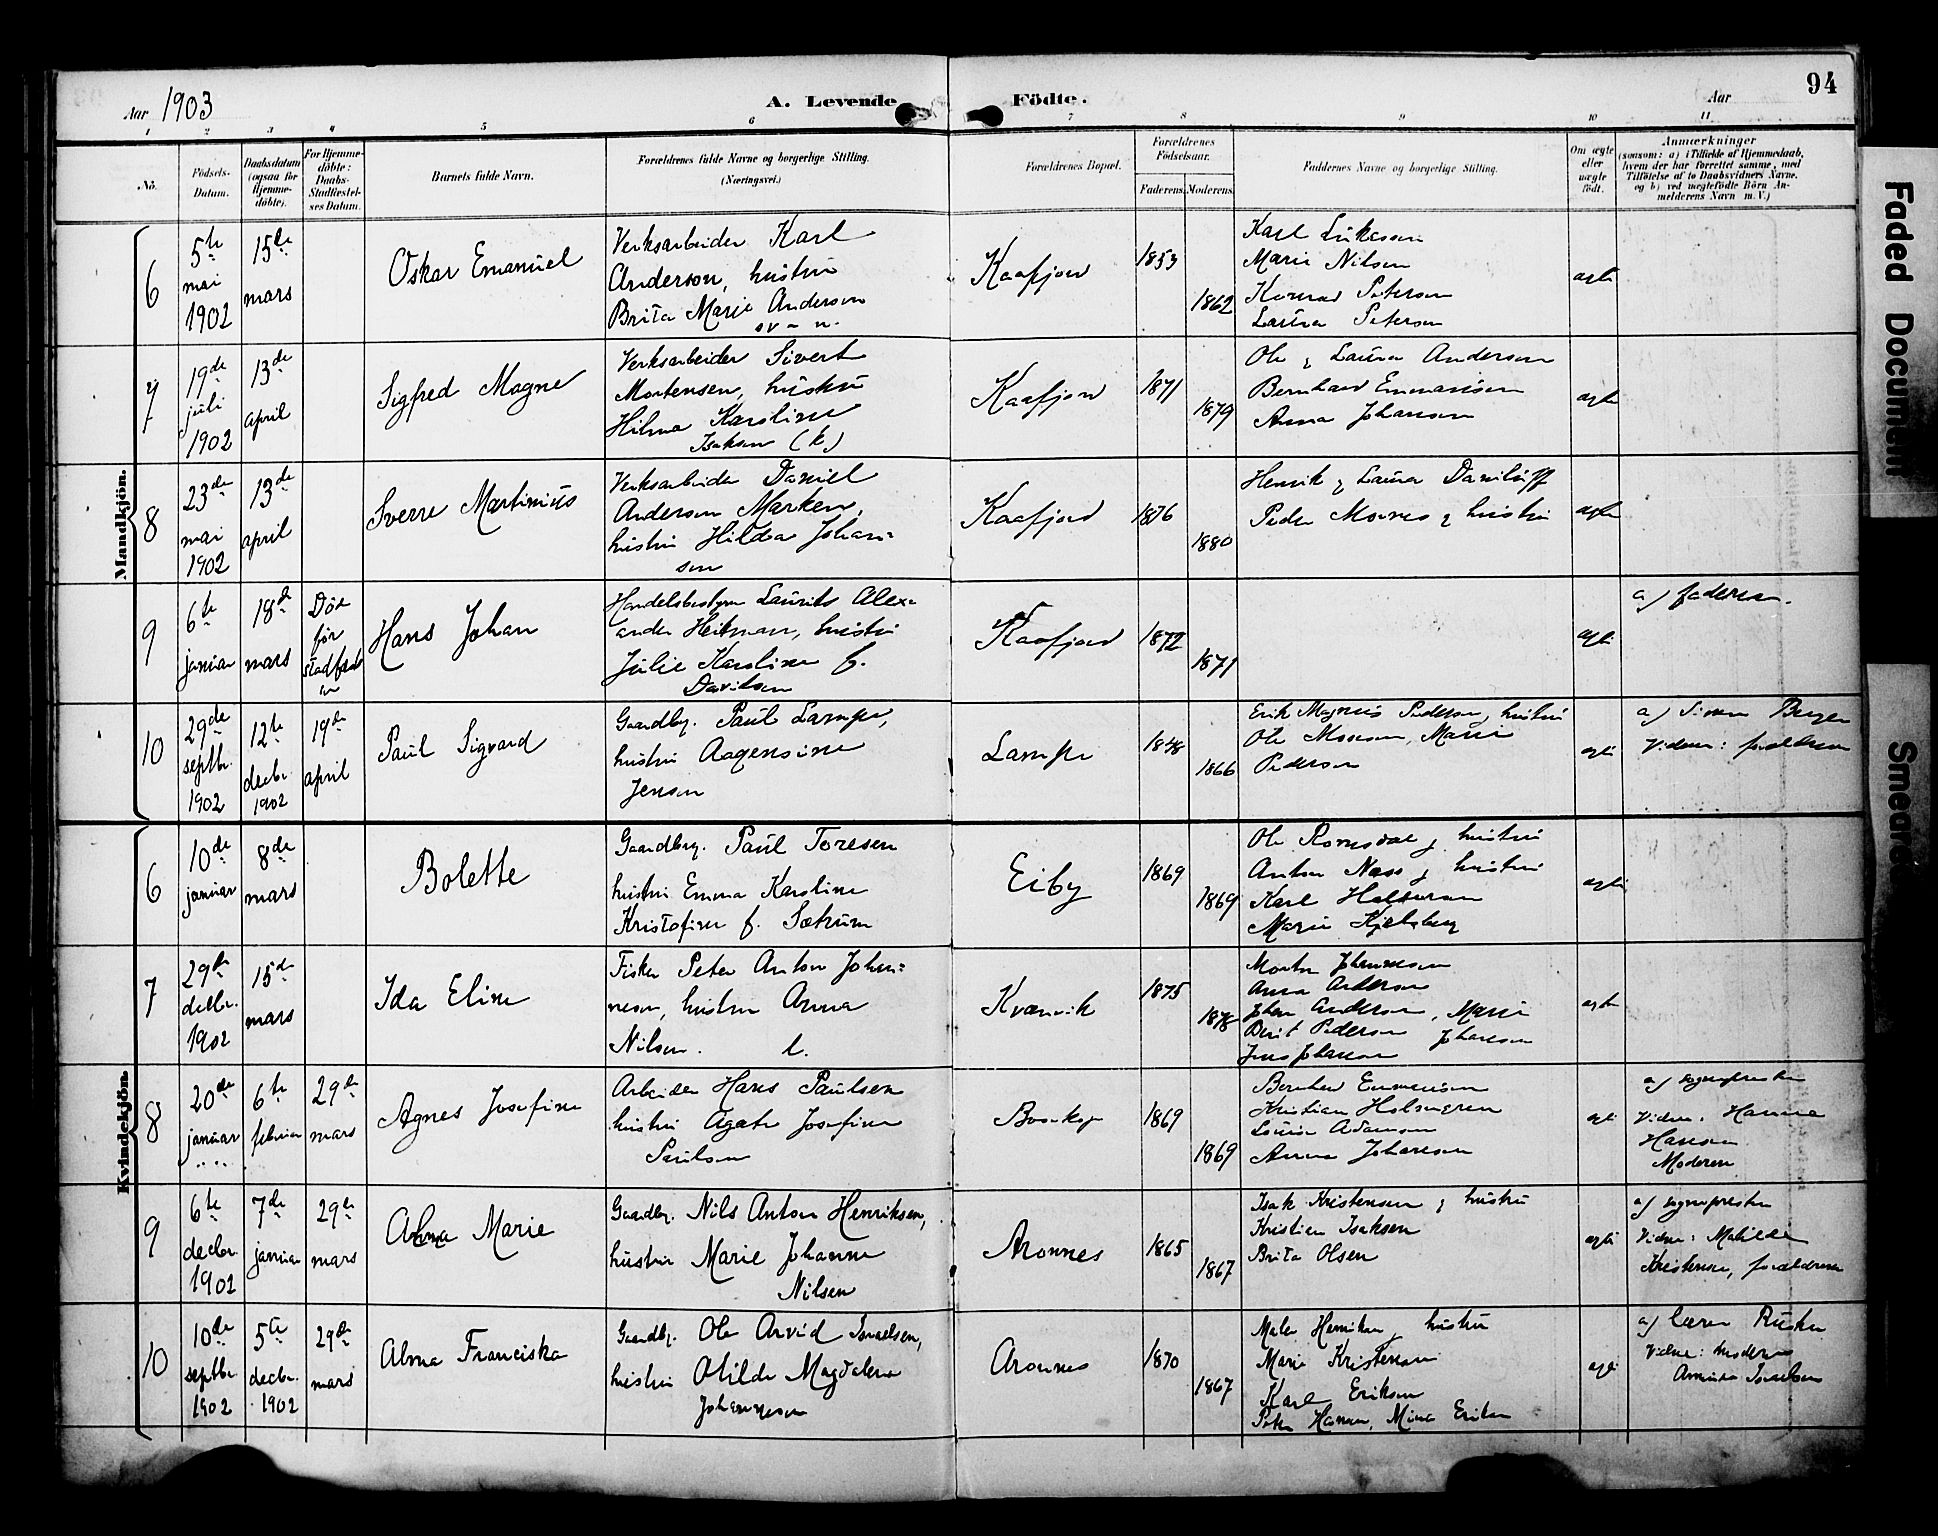 Aar 1903
A. Levende Födte.
Aar
94
1 2 3 4 5 6 7 8 9 10 11
No.
Födsels-Datum.
Daabsdatum (ogsaa for Hjemme-döbte).
For Hjemme-döbte: Daabs-Stadfæstel-ses Datum.
Barnets fulde Navn.
Forældrenes fulde Navne og borgerlige Stilling.
(Næringsvei.)
Forældrenes Bopæl.
Forældrenes Födselsaar.
Faderens. Moderens.
Faddernes Navne og borgerlige Stilling.
Om ægte eller uægte födt.
Anmærkninger
(saasom: a) i Tilfælde af Hjemmedaab, hvem der har forrettet samme, med Tilföielse af to Daabsvidners Navne. og b) ved uægtefödte Börn An-melderens Navn m. V.)
Mandkjön.
6
5te mai 1902
15de mars
Oskar Emanuel
Verksarbeider Karl
Anderson, hustru
Brita Marie Anderson
Kaafjord
1853
1862
Marie Nilsen
Konrad Peterson
Laura Peterson
ægte
7
19de juli 1902
13de april
Sigfred Magne
Verksarbeider Sivert
Mortensen, hustru
Hilma Karoline
Isaksen (k)
Kaafjord
1871
1879
Ole & Laura Anderson
Anna Johanson
ægte
8
23de mai 1902
13de april
Sverre Martinius
Verksarbeider Daniel
Anderson Marken,
hustru Hilda Johan-
sen
Kaafjord
1876
1880
Henrik & Laura
hustru
ægte
9
6te januar
18de mars
Död før
Hans Johan
Handelsbestyrer Laurits Alex-
ander Heitman, hustru
Julie Karoline f.
Davidsen
Kaafjord
1872
1871
ægte
a) faderen.
10
29de septbr. 1902
12te decbr. 1902
19de april
Paul Sigvard
Gaardbr. Paul Lampe,
hustru Aagensine
Jensen
Lampe
1848
1866
Erik Magnus Pederson, hustru
Ole Monson, Marie
Pederson
ægte
a)
Vidner: forældrene
Kvindekjön.
6
10de januar
8de mars
Bolette
Gaardbrg. Paul Toresen
hustru Emma Karoline
Kristofine f. Sætrum
Eiby
1869
1869
Ole Romsdal & hustru
Anton Næss & hustru
Karl Halvorsen
Marie Kjelsberg
ægte
7
29de decbr. 1902
15de mars
Ida Eline
Fisker Peter Anton Johan-
nesen, hustru Anna
Nilsen. l.
Kvænvik
1875
1878
Morten Johannesen
Anna Anderson
Johan Anderson, Marie
Berit Pederson Johanson
Jens Johanson
ægte
8
20de januar
6te februar
29de mars
Agnes Josefine
Arbeider Hans Paulsen
hustru Agate Josefine
Paulson
Bosekop
1869
1869
Kristian Holmgren
Lovise Adamson
Anna Johanson
ægte
a) sognepresten
Vidne: Hanna
Hanson
Moderen
9
6te decbr. 1902
7de januar
29de mars
Alma Marie
Gaardbr. Nils Anton Henriksen,
hustru Marie Johanne
Nilsen
Aronnes
1865
1867
Isak Kristensen & hustru
Kristian Isaksen
Brita Olsen
ægte
a) sognepresten
Vidne: Matilde
Kristensen, forældrene
10
10de septbr. 1902
5te decbr. 1902
29de mars
Alma Franciska
Gaardbr. Ole Arvid Israelsen,
hustru Olilde Magdalena
Johannesen
Aronnes
1870
1867
hustru
Marie Kristensen
Karl Erikson
Peter Hansen, Mina Erikson
ægte
a) lærer
Vidne: moderen
Faded Document
Smeared